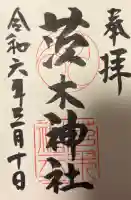 奉拝
茨木神社
令和六年三月十日